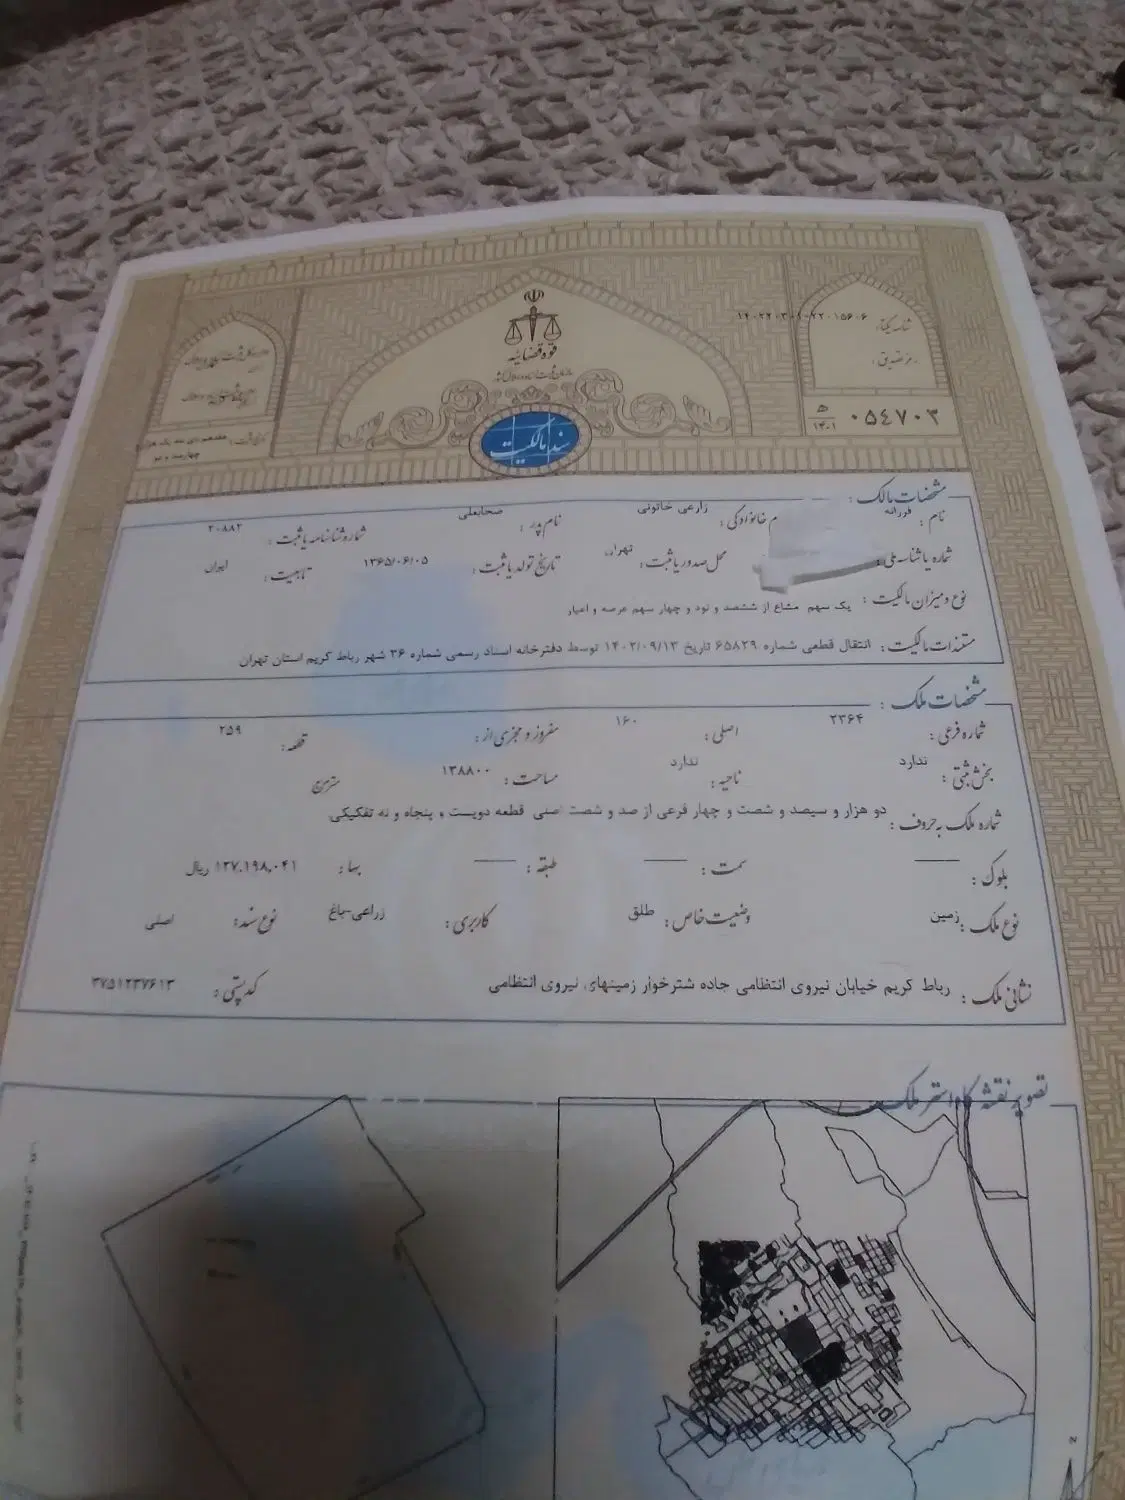 قوه قضائیه
شناسه یکتا:
رمز تصدیق:
۰۵۴۷۰۳
ه‍
۱۴۰۱
سند مالکیت
هفدهم دی ماه یک هزار و
چهارصد و دو
مشخصات مالک:
نام: فرزانه نام خانوادگی: زارعی خاتونی نام پدر: صحابعلی شماره شناسنامه یا ثبت: ۲۰۸۸۲
شماره یا شناسه ملی: محل صدور یا ثبت: تهران تاریخ تولد یا ثبت: ۱۳۶۵/۰۶/۰۵ تابعیت: ایران
نوع و میزان مالکیت: یک سهم مشاع از ششصد و نود و چهار سهم عرصه و اعیان
مستندات مالکیت: انتقال قطعی شماره ۶۵۸۲۹ تاریخ ۱۴۰۲/۰۹/۱۳ توسط دفترخانه اسناد رسمی شماره ۳۶ شهر رباط کریم استان تهران
مشخصات ملک:
شماره فرعی: ۲۳۶۴ اصلی: ۱۶۰ مفروز و مجزی از: قطعه: ۲۵۹
بخش ثبتی: ندارد ناحیه: ندارد مساحت: ۱۳۸۸۰۰ مترمربع
شماره ملک به حروف: دو هزار و سیصد و شصت و چهار فرعی از صد و شصت اصلی قطعه دویست و پنجاه و نه تفکیکی
بلوک: سمت: طبقه: بها: ۱۲۷,۱۹۸,۰۴۱ ریال
نوع ملک: زمین وضعیت خاص: طلق کاربری: زراعی-باغ نوع سند: اصلی
نشانی ملک: رباط کریم خیابان نیروی انتظامی جاده شترخوار زمینهای نیروی انتظامی کدپستی: ۳۷۵۱۲۳۷۶۱۳
تصویر نقشه کاداستر ملک
N